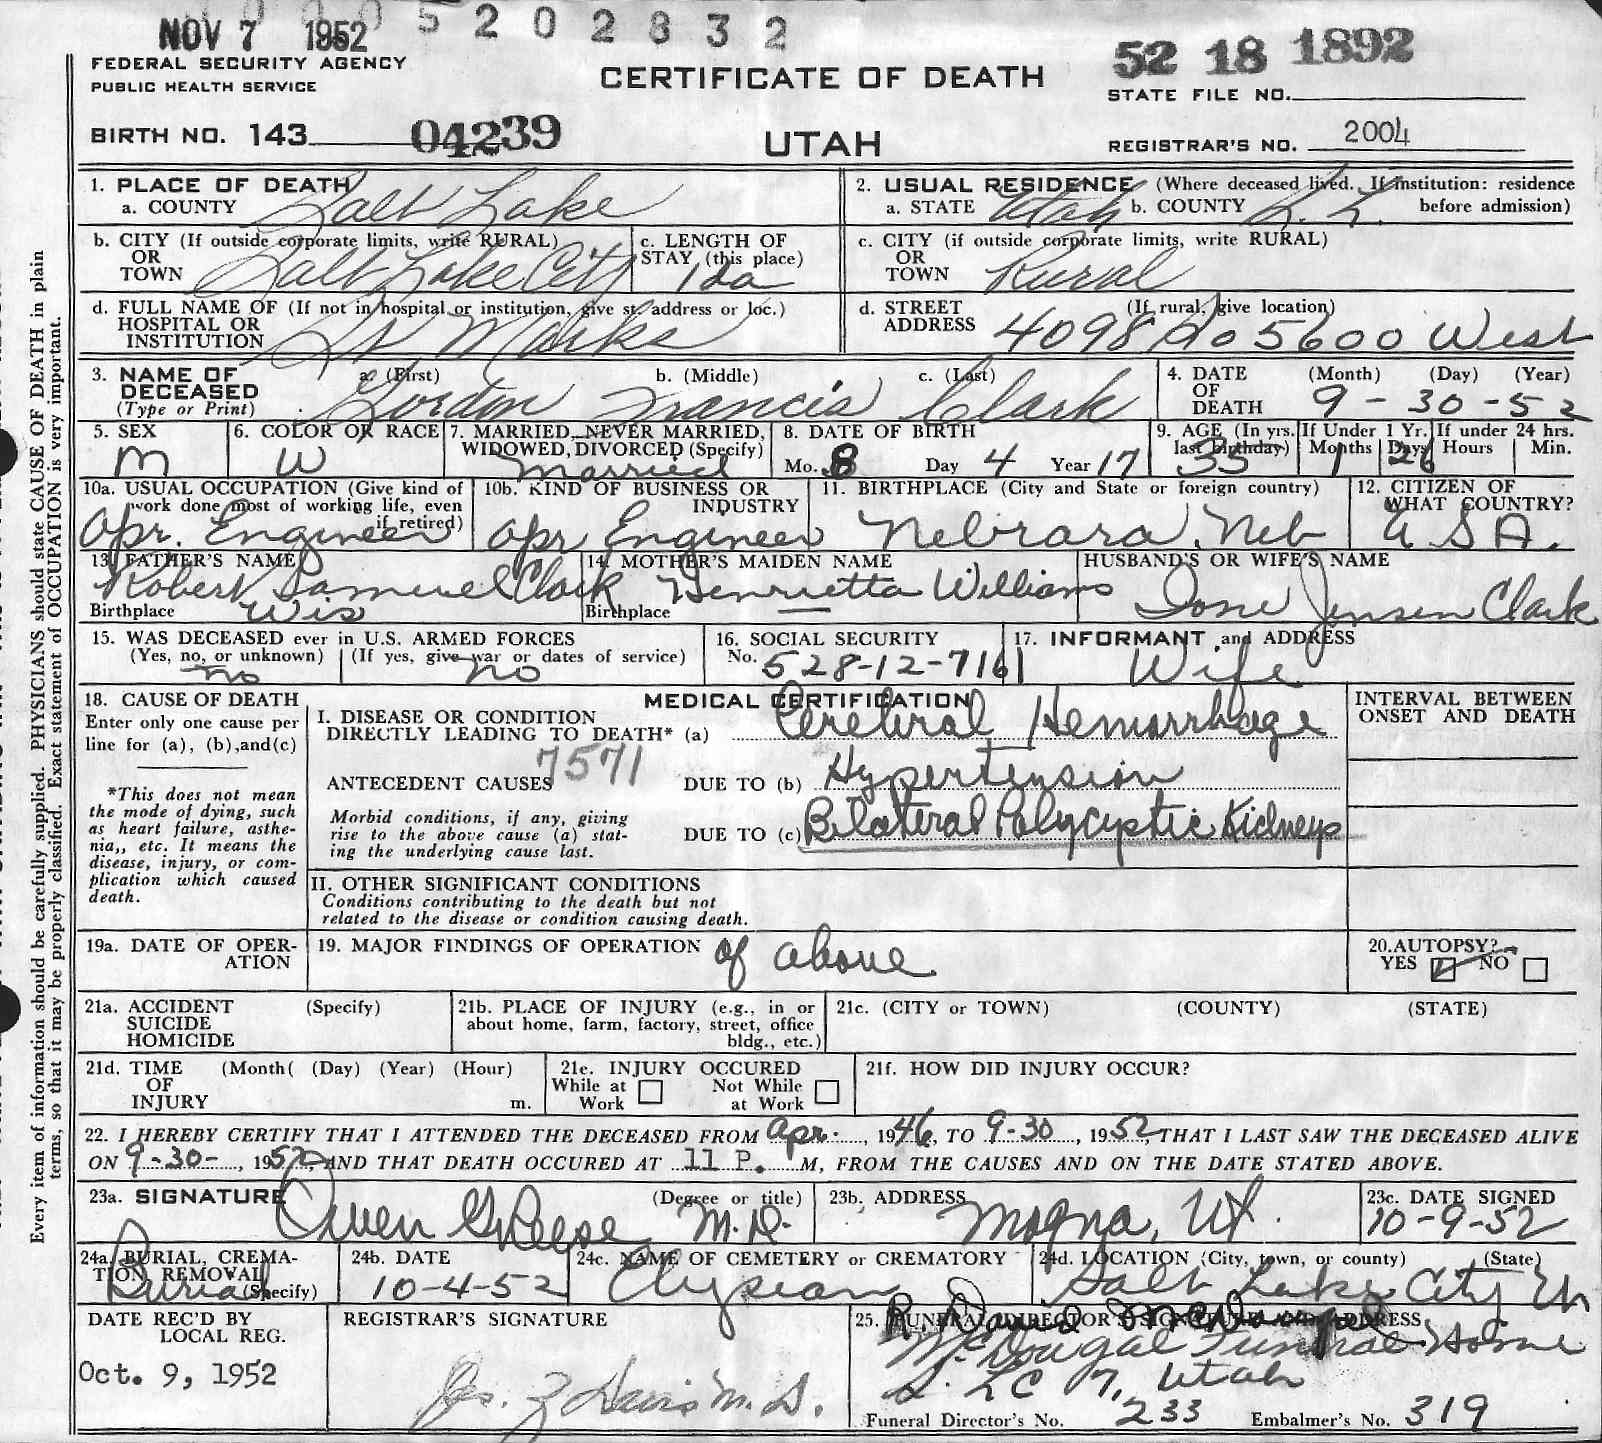 NOV 7 1952 0005202832
52 18 1892
FEDERAL SECURITY AGENCY
PUBLIC HEALTH SERVICE
CERTIFICATE OF DEATH
STATE FILE NO.
BIRTH NO. 143 04239
UTAH
REGISTRAR'S NO. 2004
1. PLACE OF DEATH
a. COUNTY Salt Lake
2. USUAL RESIDENCE (Where deceased lived. If institution: residence before admission)
a. STATE Utah b. COUNTY S. L.
b. CITY (If outside corporate limits, write RURAL)
OR
TOWN Salt Lake City
c. LENGTH OF
STAY (this place) 1 da
c. CITY (if outside corporate limits, write RURAL)
OR
TOWN Rural
d. FULL NAME OF (If not in hospital or institution, give st. address or loc.)
HOSPITAL OR
INSTITUTION St Marks
d. STREET (If rural, give location)
ADDRESS 4098 So 5600 West
3. NAME OF a. (First) b. (Middle) c. (Last)
DECEASED
(Type or Print) Gordon Francis Clark
4. DATE (Month) (Day) (Year)
OF
DEATH 9 - 30 - 52
5. SEX
M
6. COLOR OR RACE
W
7. MARRIED, NEVER MARRIED,
WIDOWED, DIVORCED (Specify)
Married
8. DATE OF BIRTH
Mo. 8 Day 4 Year 17
9. AGE (In yrs. last birthday) 35
If Under 1 Yr. Months 1 Days 26
If under 24 hrs. Hours Min.
10a. USUAL OCCUPATION (Give kind of
work done most of working life, even
if retired)
Opr. Engineer
10b. KIND OF BUSINESS OR
INDUSTRY
Opr Engineer
11. BIRTHPLACE (City and State or foreign country)
Nebrara, Neb
12. CITIZEN OF
WHAT COUNTRY?
U S A.
13. FATHER'S NAME
Robert Samuel Clark
Birthplace Wis
14. MOTHER'S MAIDEN NAME
Henrietta Williams
Birthplace —
HUSBAND'S OR WIFE'S NAME
Ione Jensen Clark
15. WAS DECEASED ever in U.S. ARMED FORCES
(Yes, no, or unknown) (If yes, give war or dates of service)
no no
16. SOCIAL SECURITY
No. 528-12-7161
17. INFORMANT and ADDRESS
Wife
18. CAUSE OF DEATH
Enter only one cause per
line for (a), (b), and (c)
*This does not mean
the mode of dying, such
as heart failure, asthe-
nia,, etc. It means the
disease, injury, or com-
plication which caused
death.
MEDICAL CERTIFICATION
INTERVAL BETWEEN
ONSET AND DEATH
I. DISEASE OR CONDITION
DIRECTLY LEADING TO DEATH* (a) Cerebral Hemorrhage
7571
ANTECEDENT CAUSES DUE TO (b) Hypertension
Morbid conditions, if any, giving
rise to the above cause (a) stat-
ing the underlying cause last.
DUE TO (c) Bilateral Polycystic Kidneys
II. OTHER SIGNIFICANT CONDITIONS
Conditions contributing to the death but not
related to the disease or condition causing death.
19a. DATE OF OPER-
ATION
19. MAJOR FINDINGS OF OPERATION of above
20. AUTOPSY?
YES NO
21a. ACCIDENT (Specify)
SUICIDE
HOMICIDE
21b. PLACE OF INJURY (e.g., in or
about home, farm, factory, street, office
bldg., etc.)
21c. (CITY or TOWN) (COUNTY) (STATE)
21d. TIME (Month( (Day) (Year) (Hour)
OF
INJURY m.
21e. INJURY OCCURED
While at Work Not While at Work
21f. HOW DID INJURY OCCUR?
22. I HEREBY CERTIFY THAT I ATTENDED THE DECEASED FROM Apr., 1946, TO 9-30, 1952 THAT I LAST SAW THE DECEASED ALIVE
ON 9-30-, 1952 AND THAT DEATH OCCURED AT 11 P. M, FROM THE CAUSES AND ON THE DATE STATED ABOVE.
23a. SIGNATURE (Degree or title)
Owen G Reese M.D.
23b. ADDRESS
Magna, Ut.
23c. DATE SIGNED
10-9-52
24a. BURIAL, CREMA-
TION REMOVAL
(Specify)
Burial
24b. DATE
10-4-52
24c. NAME OF CEMETERY or CREMATORY
Elysian
24d. LOCATION (City, town, or county) (State)
Salt Lake City Ut
DATE REC'D BY
LOCAL REG.
Oct. 9, 1952
REGISTRAR'S SIGNATURE
Jas. Z Davis M.D.
25. FUNERAL DIRECTOR'S SIGNATURE AND ADDRESS
R. David McDougal
McDougal Funeral Home
S. L C 7, Utah
Funeral Director's No. 233 Embalmer's No. 319
Every item of information should be carefully supplied. PHYSICIANS should state CAUSE OF DEATH in plain
terms, so that it may be properly classified. Exact statement of OCCUPATION is very important.